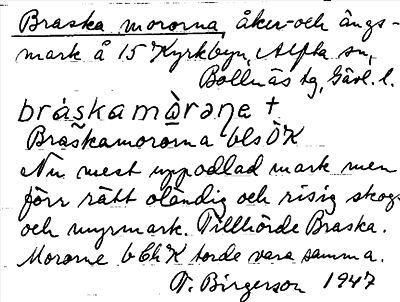 Braska mororna, åker- och ängs-
mark å 15 Kyrkbyn, Alfta sn,
Bollnäs tg, Gävl. l.
bráskamὰ̱rəɳe +
Braskamororna bls ÖK
Nu mest uppodlad mark men
förr rätt oländig och risig skogs
och myrmark. Tillhörde Braska.
Mororne b Ch K torde vara samma.
T. Birgerson 1947